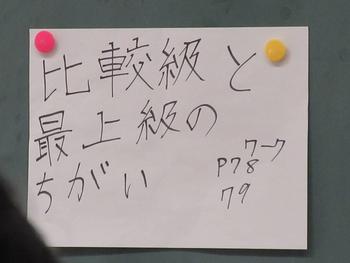 比較級と
最上級の
ちがい
ワーク
P78
79